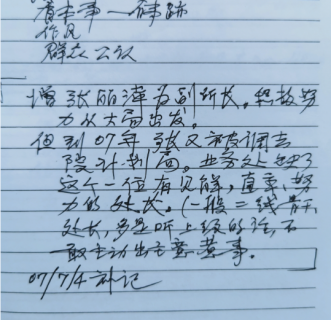 看本事—事迹
作风
群众公认
增张丽萍为副所长。经极努
力从大局出发。
但到07年 张又被调去
院计划局。业务处缺了
这个一位有见解，直率、努
力的处长。（一般二线
处长，多是听上级的话，不
敢主动出主意惹事。
07/7/4 补记